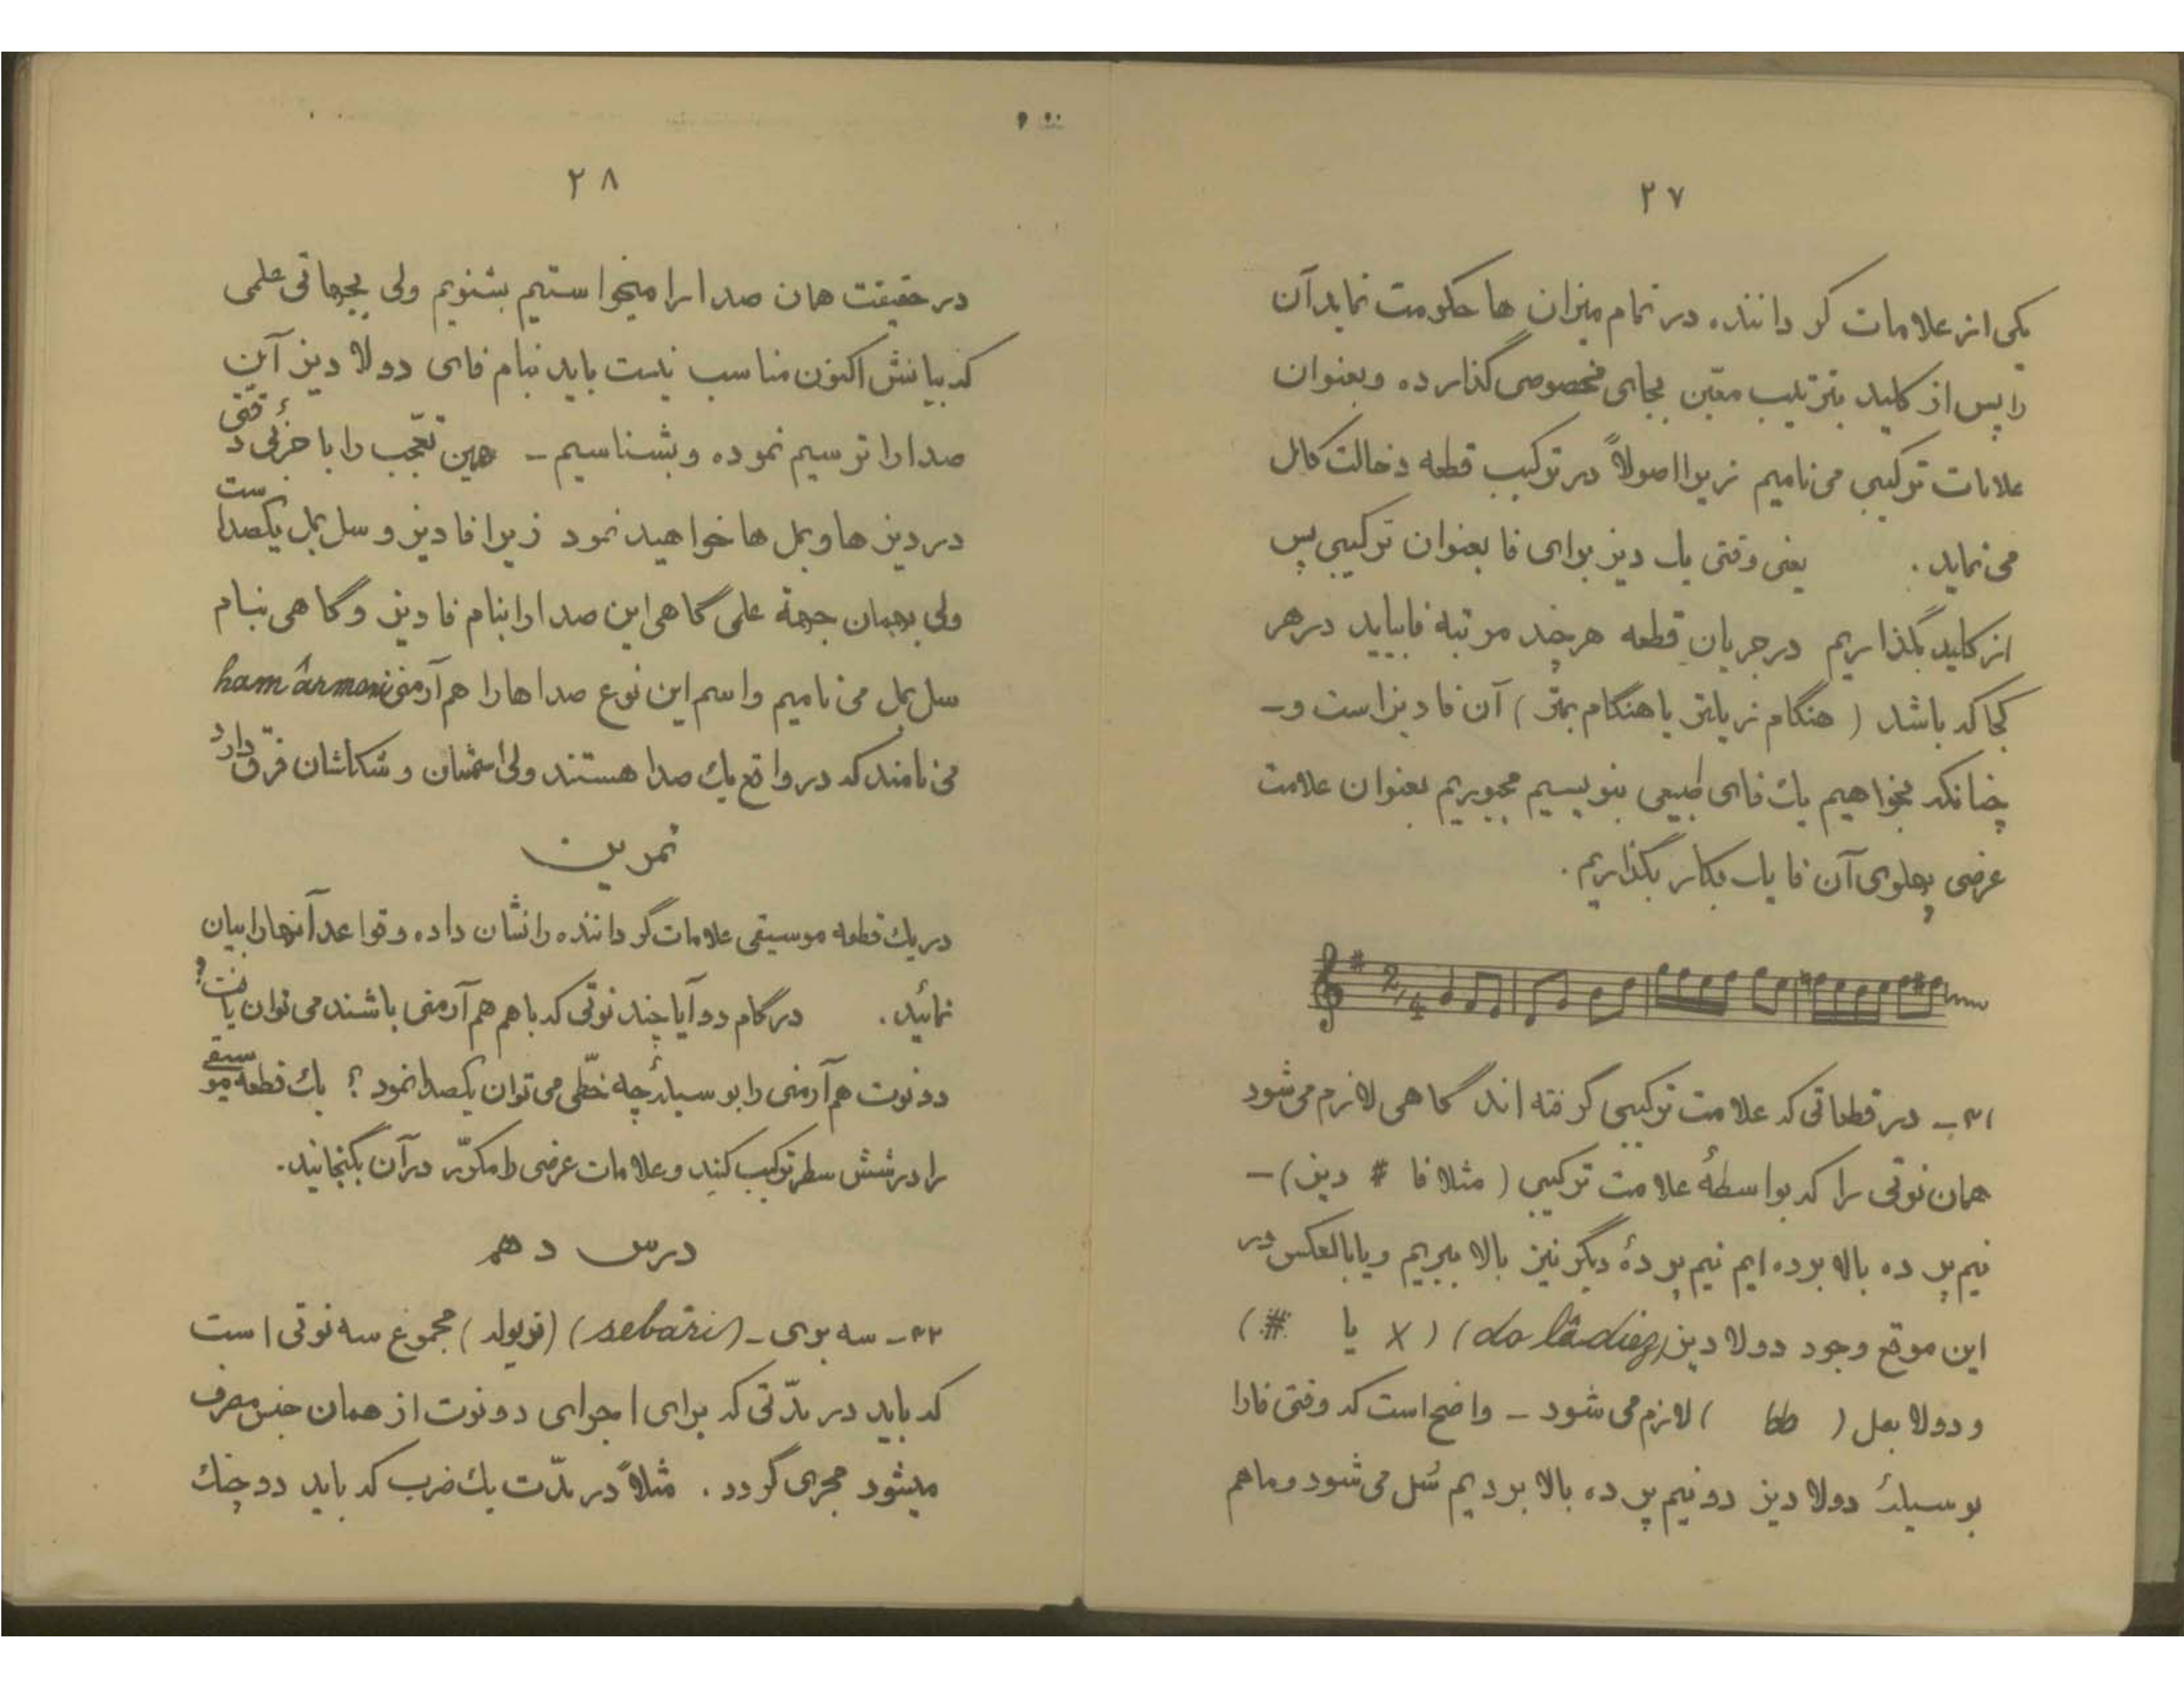 ۲۷
یکی از علامات گرداننده در تمام میزان ها حکومت نماید آن
را پس از کلید بترتیب معیّن بجای مخصوصی گذارده و بعنوان
علامات ترکیبی می نامیم زیرا اصولاً در ترکیب قطعه دخالت کامل
می نماید . یعنی وقتی یک دیز برای فا بعنوان ترکیبی پس
از کلید بگذاریم در جریان قطعه هر چند مرتبه فا بیاید در هر
کجا که باشد ( هنگام زیرتر یا هنگام بمتر ) آن فا دیز است و ـ
چنانکه بخواهیم یک فای طبیعی بنویسیم مجبوریم بعنوان علامت
عرضی پهلوی آن فا یک بکار بگذاریم .
2/4
۳۱ ـ در قطعاتی که علامت ترکیبی گرفته اند گاهی لازم می شود
همان نوتی را که بواسطهٔ علامت ترکیبی ( مثلا فا # دیز ) ـ
نیم پرده بالا برده ایم نیم پردهٔ دیگر نیز بالا ببریم و یا بالعکس در
این موقع وجود دولا دیز (do lâ diez) ( x یا # )
و دولا بمل ( bb ) لازم می شود ـ واضح است که وقتی فا را
بوسیلهٔ دولا دیز دو نیم پرده بالا بردیم سُل می شود و ما هم
۲۸
در حقیقت همان صدا را میخواستیم بشنویم ولی بجهاتی علمی
که بیانش اکنون مناسب نیست باید بنام فای دولا دیز آین
صدا را ترسیم نموده و بشناسیم ـ همین تعّجب را با جزئی دقتی
در دیز ها و بمل ها خواهید نمود زیرا فا دیز و سل بمل یکصداست
ولی بهمان جهة علمی گاهی این صدا را بنام فا دیز و گاهی بنام
سل بمل می نامیم و اسم این نوع صداها را هم آرمنی ham ârmoni
می نامند که در واقع یک صدا هستند ولی اسمشان و شکلشان فرق دارد
تمرین
در یک قطعه موسیقی علامات گرداننده را نشان داده و قواعد آنها را بیان
نمائید . در گام دو آیا چند نوتی که با هم هم آرمنی باشند می توان یافت ؟
دو نوت هم آرمنی را بوسیلهٔ چه خطّی می توان یکصدا نمود ؟ یک قطعه موسیقی
را در شش سطر ترکیب کنید و علامات عرضی را مکرّر در آن بگنجانید .
درس دهم
۳۲ ـ سه بری ـ (sebari) (تریوله) مجموع سه نوتی است
که باید در مدّتی که برای اجرای دو نوت از همان جنس مصرف
میشود مجری گردد . مثلاً در مدّت یک ضرب که باید دو چنگ